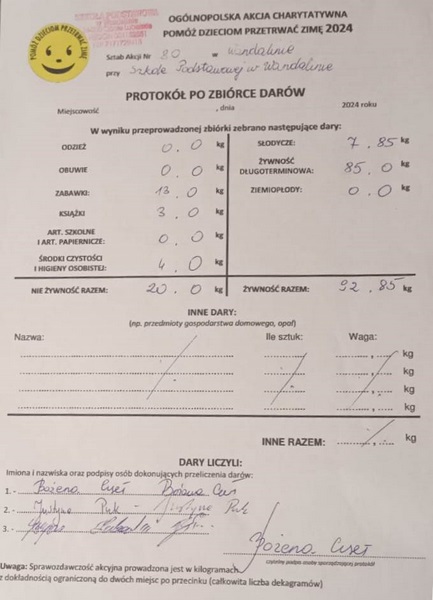 POMÓŻ DZIECIOM PRZETRWAĆ ZIMĘ
SZKOŁA PODSTAWOWA
OGÓLNOPOLSKA AKCJA CHARYTATYWNA
POMÓŻ DZIECIOM PRZETRWAĆ ZIMĘ 2024
Sztab Akcji Nr 80 w Wandalinie
przy Szkole Podstawowej w Wandalinie
PROTOKÓŁ PO ZBIÓRCE DARÓW
Miejscowość , dnia 2024 roku
W wyniku przeprowadzonej zbiórki zebrano następujące dary:
ODZIEŻ 0.0 kg
OBUWIE 0.0 kg
ZABAWKI: 13.0 kg
KSIĄŻKI 3.0 kg
ART. SZKOLNE
I ART. PAPIERNICZE: 0.0 kg
ŚRODKI CZYSTOŚCI
I HIGIENY OSOBISTEJ: 4.0 kg
NIE ŻYWNOŚĆ RAZEM: 20.0 kg
SŁODYCZE: 7.85 kg
ŻYWNOŚĆ
DŁUGOTERMINOWA: 85.0 kg
ZIEMIOPŁODY: 0.0 kg
ŻYWNOŚĆ RAZEM: 92.85 kg
INNE DARY:
(np. przedmioty gospodarstwa domowego, opał)
Nazwa: Ile sztuk: Waga:
kg
kg
kg
kg
INNE RAZEM: kg
DARY LICZYLI:
Imiona i nazwiska oraz podpisy osób dokonujących przeliczenia darów:
1. - Bożena
2. - Justyna Puk - Justyna Puk
3. -
Bożena
czytelny podpis osoby sporządzającej protokół
Uwaga: Sprawozdawczość akcyjna prowadzona jest w kilogramach
z dokładnością ograniczoną do dwóch miejsc po przecinku (całkowita liczba dekagramów)